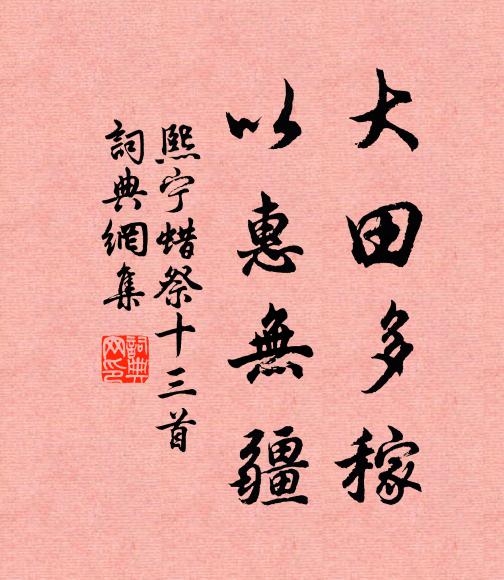 大田多稼
以惠無疆
熙宁蜡祭十三首
詞典網集
詞典網印